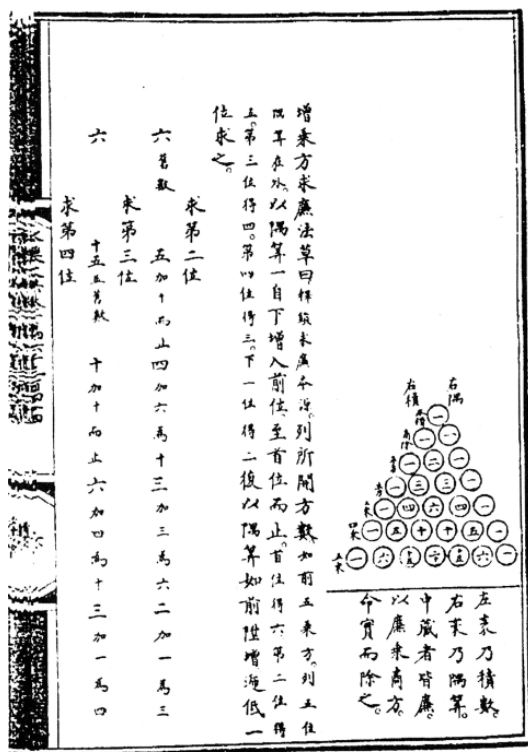 右隅
右積
一
一 一
一 二 一
一 三 三 一
一 四 六 四 一
一 五 十 十 五 一
一 六 十五 二十 十五 六 一
本積
商除
平方
立方
三乘
四乘
五乘
左袤乃積數。
右袤乃隅算。
中藏者皆廉。
以廉乘商方。
命實而除之。
增乘方求廉法草曰釋鎖求廉本源。列所開方數如前五乘方。列五位
隅算在外。以隅算一自下增入前位至首位而止。首位得六。第二位得
五。第三位得四。第四位得三。下一位得二復以隅算如前陞增遞低一
位求之。
求第二位
六舊數 五加十而止 四加六為十 三加三為六 二加一為三
求第三位
六 十五並舊數 十加十而止 六加四為十 三加一為四
求第四位